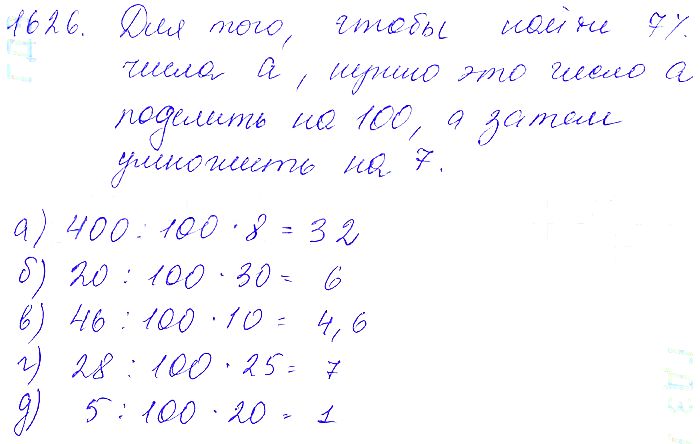 1626. Для того, чтобы найти 7%
числа a, нужно это число a
поделить на 100, а затем
умножить на 7.
а) 400 : 100 · 8 = 32
б) 20 : 100 · 30 = 6
в) 46 : 100 · 10 = 4,6
г) 28 : 100 · 25 = 7
д) 5 : 100 · 20 = 1